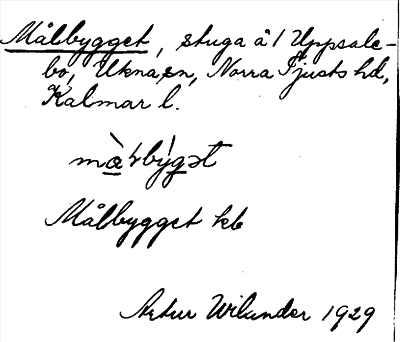 Målbygget, stuga å 1 Uppsale-
bo, Ukna sn, Norra Tjusts hd,
Kalmar l.
Målbygget kb
Artur Wilander 1929